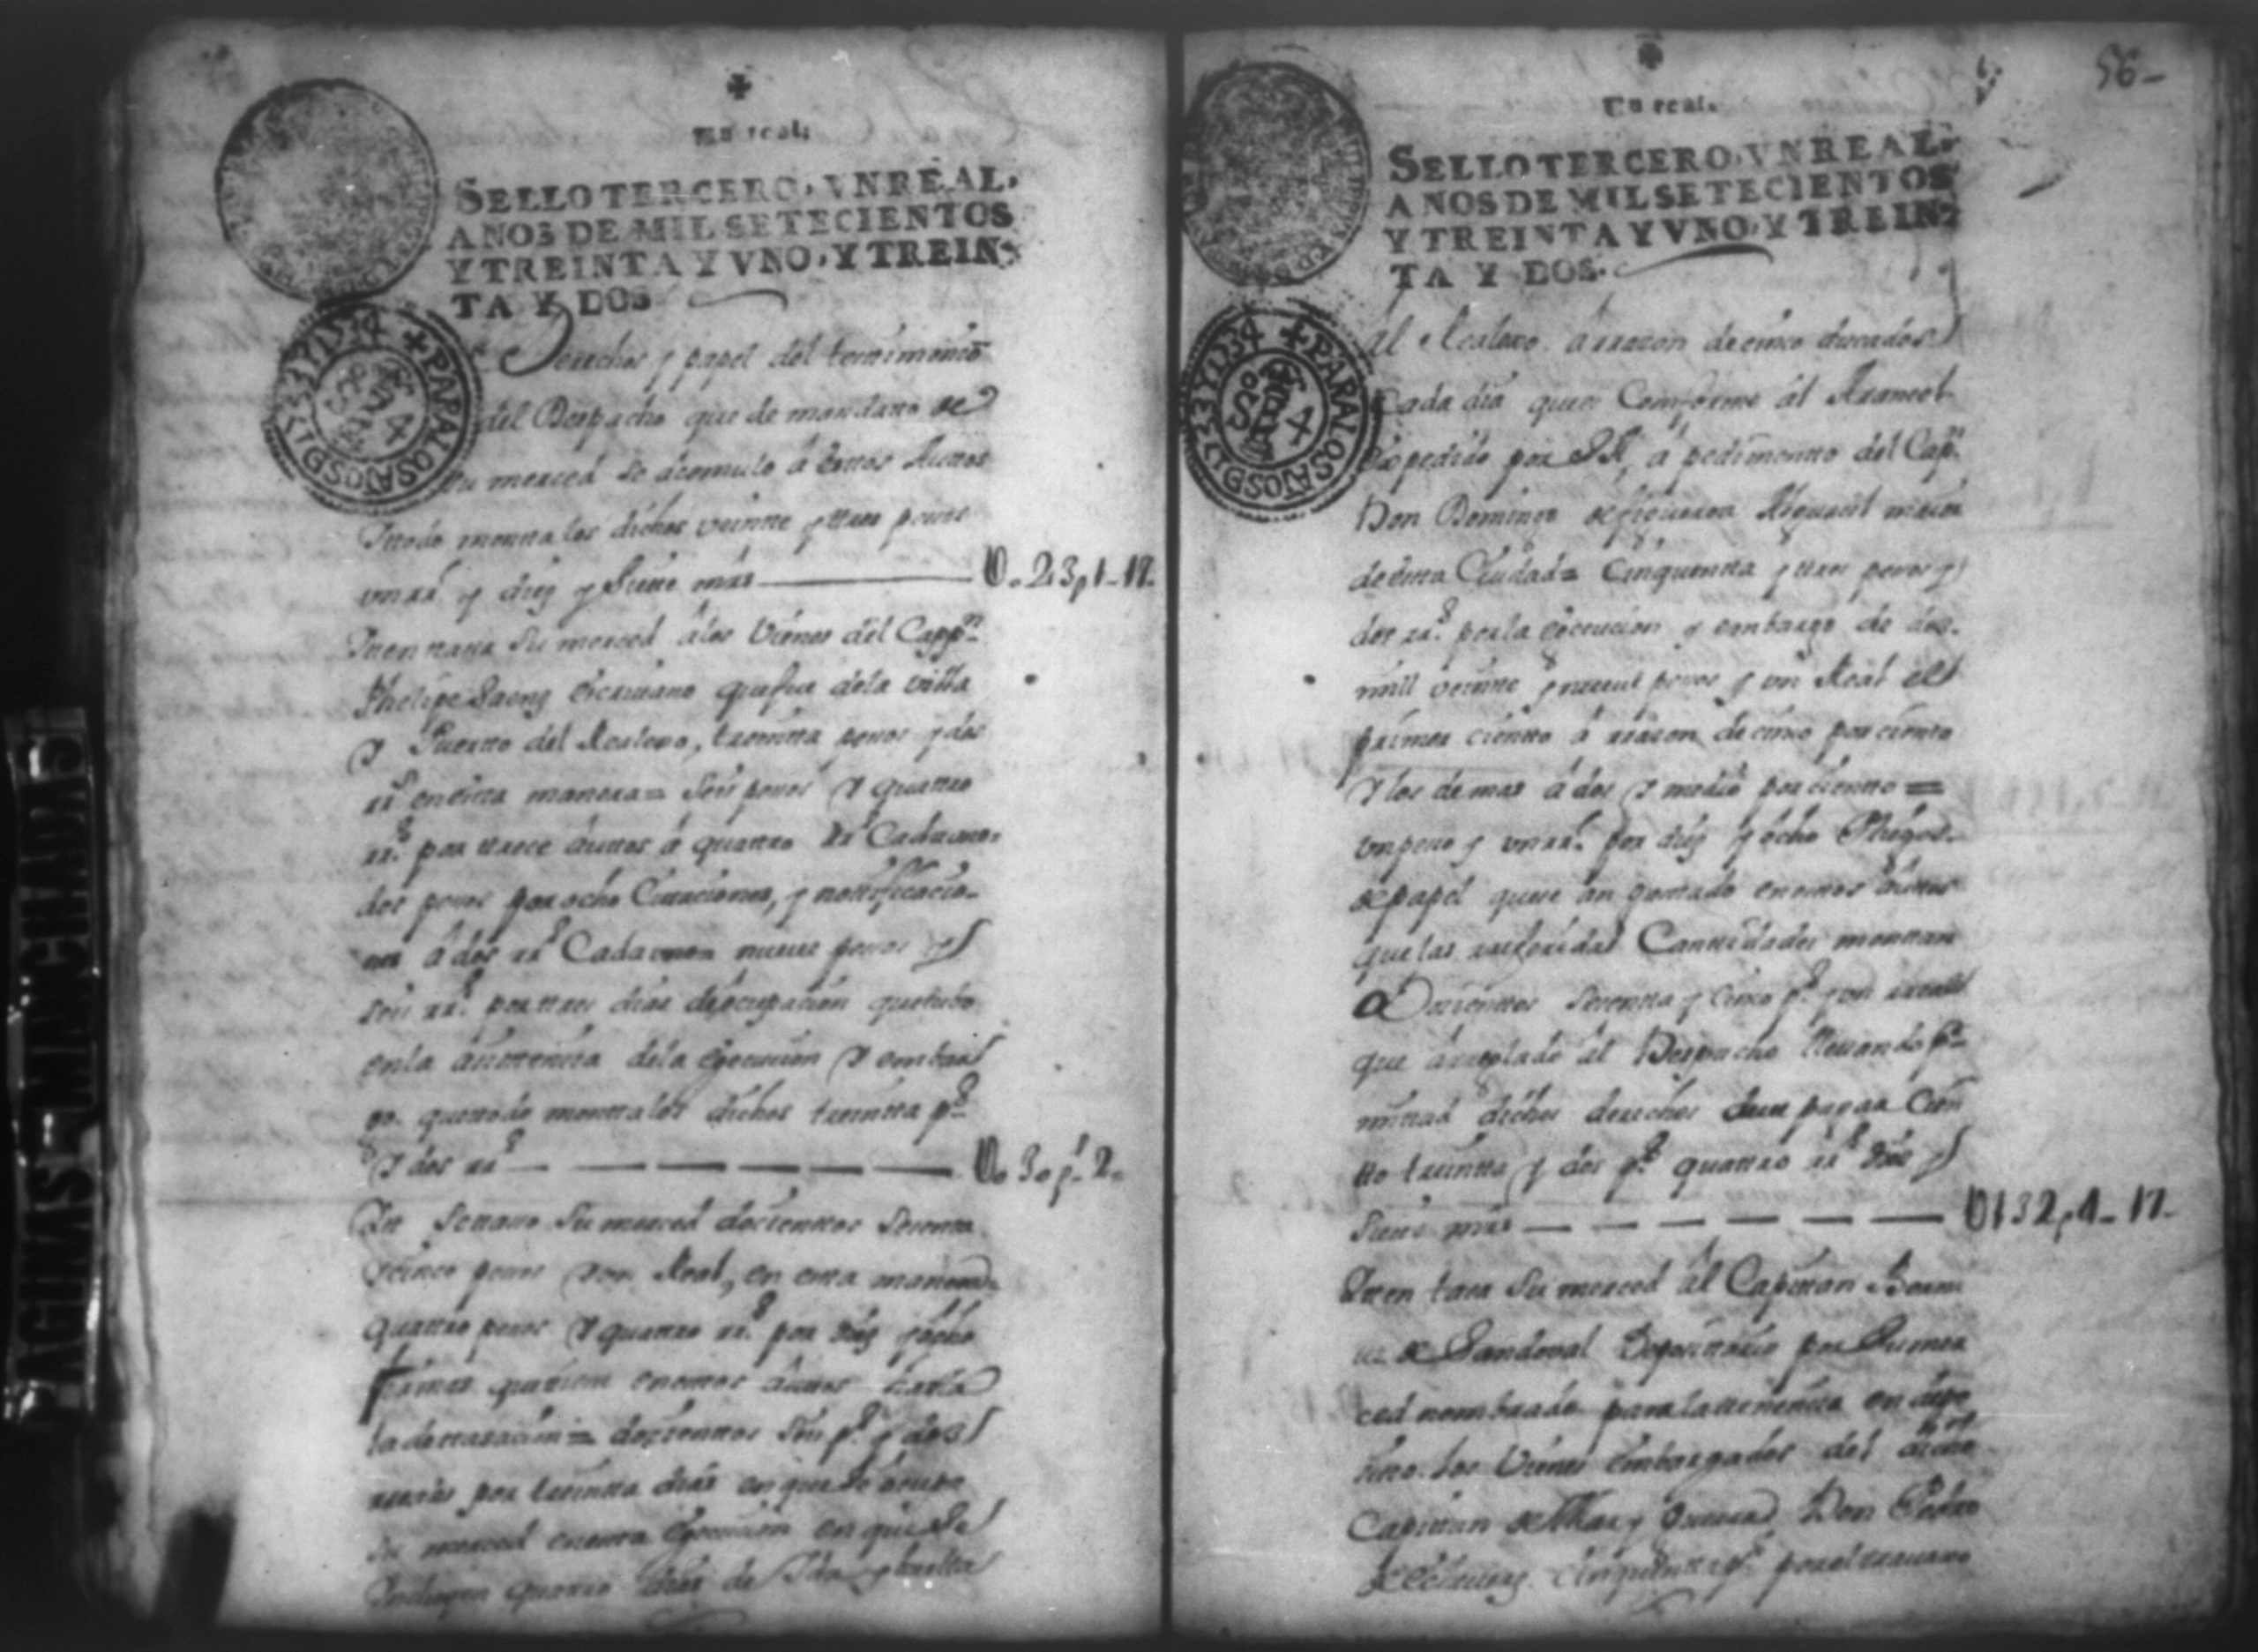 Un real.
SELLO TERCERO, VN REAL,
AÑOS DE MIL SETECIENTOS
Y TREINTA Y VNO, Y TREIN-
TA Y DOS
Derechos y papel del
del Despacho que de mandatto de
su merced se acomulo á estos Autos
Ymontta los dichos veintte y ttres pesos
un rr.^l y diez y Siete mrs U. 23 p 1 - 17.
Itten tassa Su merced á los Vienes del Capp.^n
Phelipe Saenz Escriuano que fue dela villa
y Puertto del Realexo, treintta pesos y dos
rr.^s en estta manera = Seis pesos y quattro
rr.^s por ttrece Auttos á quattro rr.^s Cada uno =
dos pesos por ocho Cittaciones, y nottificacio-
nes á dos rr.^s Cada una = nueue pesos y
seis rr.^s por ttres dias de ocupacion que tubo
en la assistencia dela execucion y embar
go, que ttodo montta los dichos treintta p.^s
y dos rr.^s U. 30 p.^s 2.
Itt Se tasso Su merced docienttos Setentta
y cinco pesos y un Real, en esta manera =
quattro pesos y quattro rr.^s por diez y ocho
firmas que tiene en estos Auttos hasta
la de ttasacion = docienttos Seis p.^s y dos
rreales por treintta dias en que se ocupo
Su merced en estta execucion en que se
Yncluyen quattro dias de Yda, y buelta
56-
Un real.
SELLO TERCERO, VN REAL,
AÑOS DE MIL SETECIENTOS
Y TREINTA Y VNO, Y TREIN-
TA Y DOS.
al Realexo á rrazon de cinco ducados
Cada dia que es Conforme al Arancel
expedido por S R^l, á pedimentto del Cap.^n
Don Domingo de figueroa Alguacil mayor
de estta Ciudad = Cinquentta y ttres pesos y
dos rr.^s por la execucion y embargo de dos
mill veintte y nueue pesos y un Real el
primer cientto á rrazon de cinco por ciento
y los demas á dos y medio por cientto =
un peso y un rr.^l por diez y ocho Pliegos
de papel que se an gastado en estos Auttos
que las rreferidas Canttidades monttan
Docienttos Setentta y cinco p.^s y un rreal
que arreglado al Despacho lleuando la
mittad dichos derechos deue pagar Cien
tto treintta y dos p.^s quattro rr.^s diez y
Siete mrs U132 p. 4 - 17.
Itten tasa Su merced al Capittan
de Sandoval Deposittario por Su mer
ced nombrado para la ttenencia en depo
sitto los Vienes embargados del dicho
Capittan de Mar y Guerra Don Pedro
Cinquentta p.^s por el ttrauajo